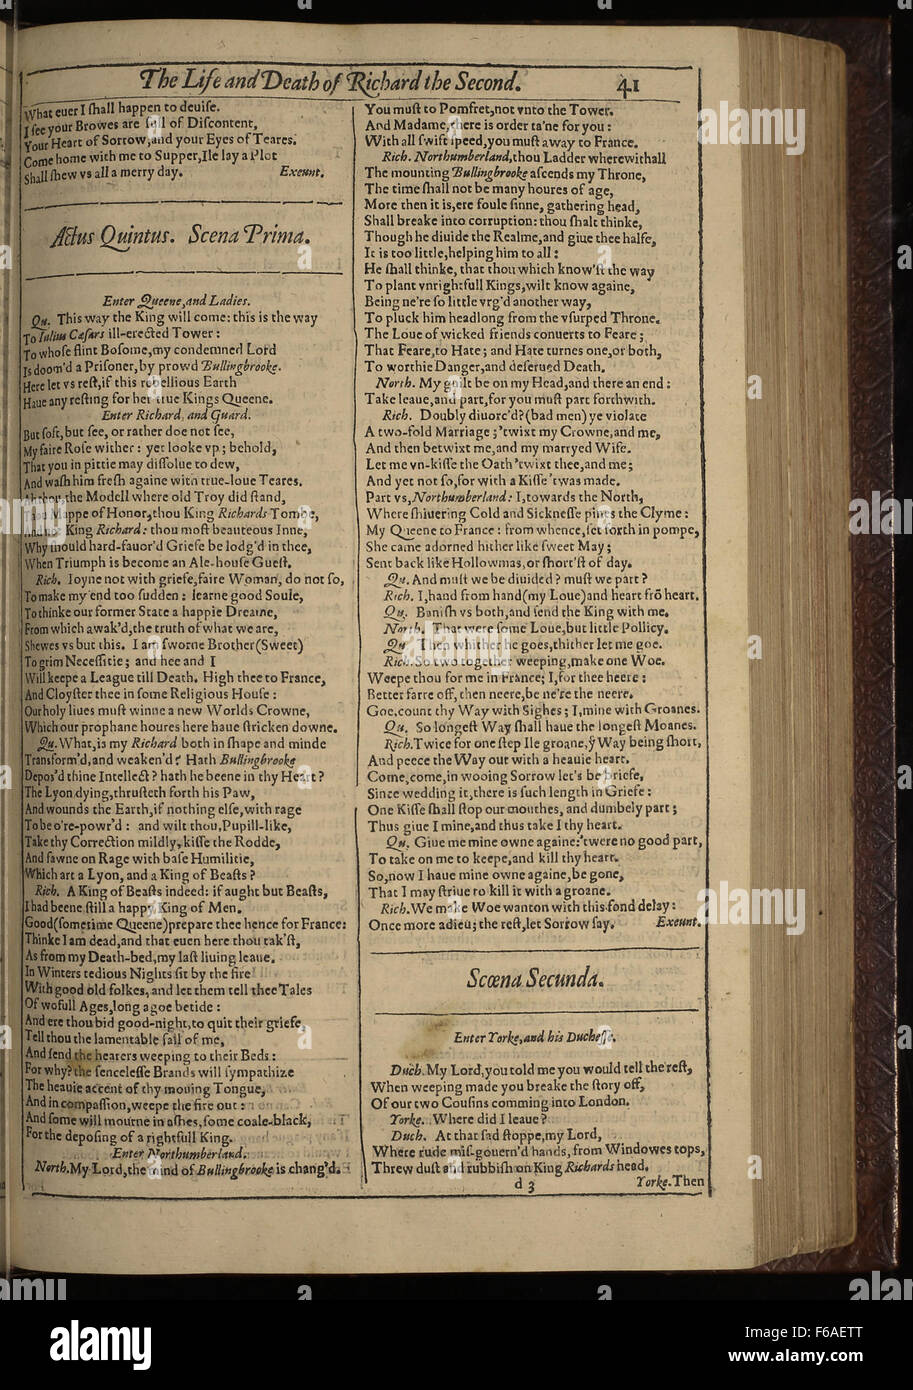 The Life and Death of Richard the Second. 41
What euer I ſhall happen to deuiſe.
I ſee your Browes are full of Diſcontent,
Your Heart of Sorrow, and your Eyes of Teares.
Come home with me to Supper, Ile lay a Plot
Shall ſhew vs all a merry day. Exeunt.
Actus Quintus. Scena Prima.
Enter Queene, and Ladies.
Qu. This way the King will come: this is the way
To Iulius Cæſars ill-erected Tower:
To whoſe flint Boſome, my condemned Lord
Is doom'd a Priſoner, by prowd Bullingbrooke.
Here let vs reſt, if this rebellious Earth
Haue any reſting for her true Kings Queene.
Enter Richard, and Guard.
But ſoft, but ſee, or rather doe not ſee,
My faire Roſe wither: yet looke vp; behold,
That you in pittie may diſſolue to dew,
And waſh him freſh againe with true-loue Teares.
Ah thou, the Modell where old Troy did ſtand,
Thou Mappe of Honor, thou King Richards Tombe,
And not King Richard: thou moſt beauteous Inne,
Why ſhould hard-fauor'd Griefe be lodg'd in thee,
When Triumph is become an Ale-houſe Gueſt.
Rich. Ioyne not with griefe, faire Woman, do not ſo,
To make my end too ſudden: learne good Soule,
To thinke our former State a happie Dreame,
From which awak'd, the truth of what we are,
Shewes vs but this. I am ſworne Brother (Sweet)
To grim Neceſſitie; and hee and I
Will keepe a League till Death. High thee to France,
And Cloyſter thee in ſome Religious Houſe:
Our holy liues muſt winne a new Worlds Crowne,
Which our prophane houres here haue ſtricken downe.
Qu. What, is my Richard both in ſhape and minde
Transform'd, and weaken'd? Hath Bullingbrooke
Depos'd thine Intellect? hath he beene in thy Heart?
The Lyon dying, thruſteth forth his Paw,
And wounds the Earth, if nothing elſe, with rage
To be o're-powr'd: and wilt thou, Pupill-like,
Take thy Correction mildly, kiſſe the Rodde,
And fawne on Rage with baſe Humilitie,
Which art a Lyon, and a King of Beaſts?
Rich. A King of Beaſts indeed: if aught but Beaſts,
I had beene ſtill a happy King of Men.
Good (ſometime Queene) prepare thee hence for France:
Thinke I am dead, and that euen here thou tak'ſt,
As from my Death-bed, my laſt liuing leaue.
In Winters tedious Nights ſit by the fire
With good old folkes, and let them tell thee Tales
Of wofull Ages, long agoe betide:
And ere thou bid good-night, to quit their griefe,
Tell thou the lamentable fall of me,
And ſend the hearers weeping to their Beds:
For why? the ſenceleſſe Brands will ſympathize
The heauie accent of thy mouing Tongue,
And in compaſſion, weepe the fire out:
And ſome will mourne in aſhes, ſome coale-black,
For the depoſing of a rightfull King.
Enter Northumberland.
North. My Lord, the mind of Bullingbrooke is chang'd.
You muſt to Pomfret, not vnto the Tower.
And Madame, there is order ta'ne for you:
With all ſwift ſpeed, you muſt away to France.
Rich. Northumberland, thou Ladder wherewithall
The mounting Bullingbrooke aſcends my Throne,
The time ſhall not be many houres of age,
More then it is, ere foule ſinne, gathering head,
Shall breake into corruption: thou ſhalt thinke,
Though he diuide the Realme, and giue thee halfe,
It is too little, helping him to all:
He ſhall thinke, that thou which know'ſt the way
To plant vnrightfull Kings, wilt know againe,
Being ne're ſo little vrg'd another way,
To pluck him headlong from the vſurped Throne.
The Loue of wicked friends conuerts to Feare;
That Feare, to Hate; and Hate turnes one, or both,
To worthie Danger, and deſerued Death.
North. My guilt be on my Head, and there an end:
Take leaue, and part, for you muſt part forthwith.
Rich. Doubly diuorc'd? (bad men) ye violate
A two-fold Marriage; 'twixt my Crowne, and me,
And then betwixt me, and my marryed Wife.
Let me vn-kiſſe the Oath 'twixt thee, and me;
And yet not ſo, for with a Kiſſe 'twas made.
Part vs, Northumberland: I, towards the North,
Where ſhiuering Cold and Sickneſſe pines the Clyme:
My Queene to France: from whence, ſet forth in pompe,
She came adorned hither like ſweet May;
Sent back like Hollowmas, or ſhort'ſt of day.
Qu. And muſt we be diuided? muſt we part?
Rich. I, hand from hand (my Loue) and heart frõ heart.
Qu. Baniſh vs both, and ſend the King with me.
North. That were ſome Loue, but little Pollicy.
Qu. Then whither he goes, thither let me goe.
Rich. So two together weeping, make one Woe.
Weepe thou for me in France; I, for thee heere:
Better farre off, then neere, be ne're the neere.
Goe, count thy Way with Sighes; I, mine with Groanes.
Qu. So longeſt Way ſhall haue the longeſt Moanes.
Rich. Twice for one ſtep Ile groane, ÿ Way being ſhort,
And peece the Way out with a heauie heart.
Come, come, in wooing Sorrow let's be briefe,
Since wedding it, there is ſuch length in Griefe:
One Kiſſe ſhall ſtop our mouthes, and dumbely part;
Thus giue I mine, and thus take I thy heart.
Qu. Giue me mine owne againe: 'twere no good part,
To take on me to keepe, and kill thy heart.
So, now I haue mine owne againe, be gone,
That I may ſtriue to kill it with a groane.
Rich. We make Woe wanton with this fond delay:
Once more adieu; the reſt, let Sorrow ſay. Exeunt.
Scœna Secunda.
Enter Yorke, and his Ducheſſe.
Duch. My Lord, you told me you would tell the reſt,
When weeping made you breake the ſtory off,
Of our two Couſins comming into London.
Yorke. Where did I leaue?
Duch. At that ſad ſtoppe, my Lord,
Where rude miſ-gouern'd hands, from Windowes tops,
Threw duſt and rubbiſh on King Richards head.
d 3 Yorke. Then
alamy stock photo
a
a
a
alamy
Image ID: F6AETT
www.alamy.com